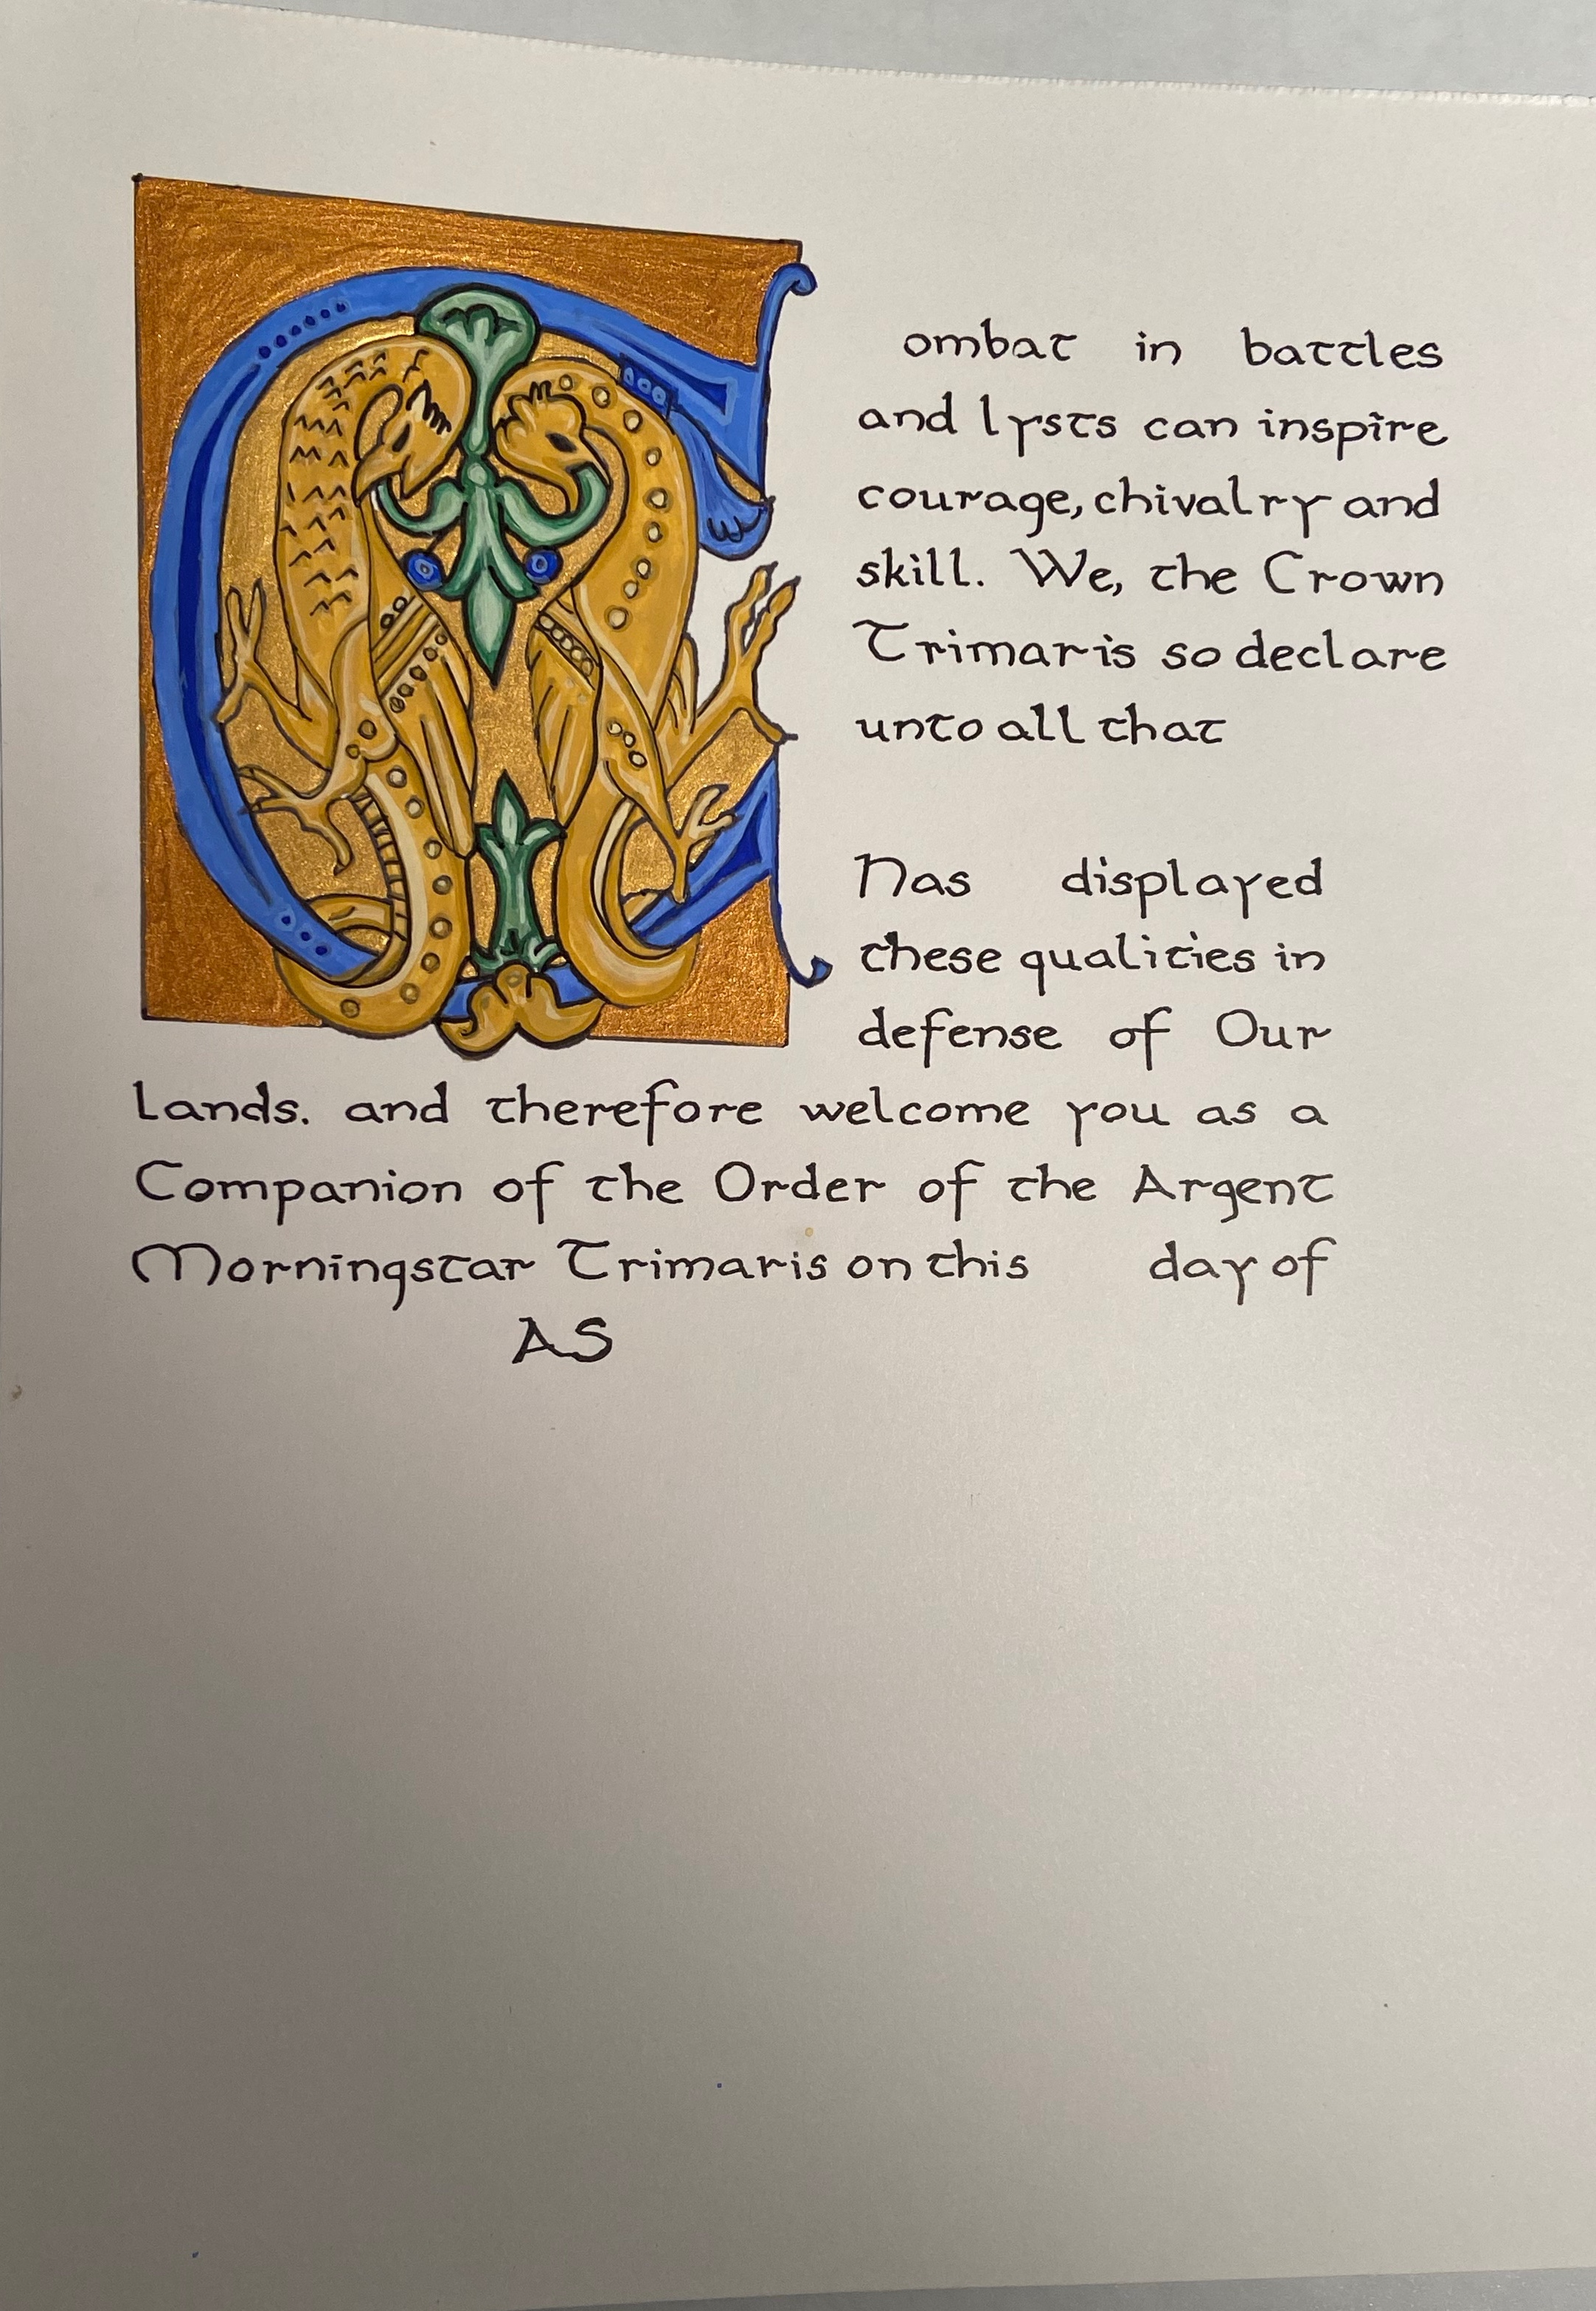 Combat in battles
and lysts can inspire
courage, chivalry and
skill. We, the Crown
Trimaris so declare
unto all that
Has displayed
these qualities in
defense of Our
Lands. and therefore welcome you as a
Companion of the Order of the Argent
Morningstar Trimaris on this day of
AS